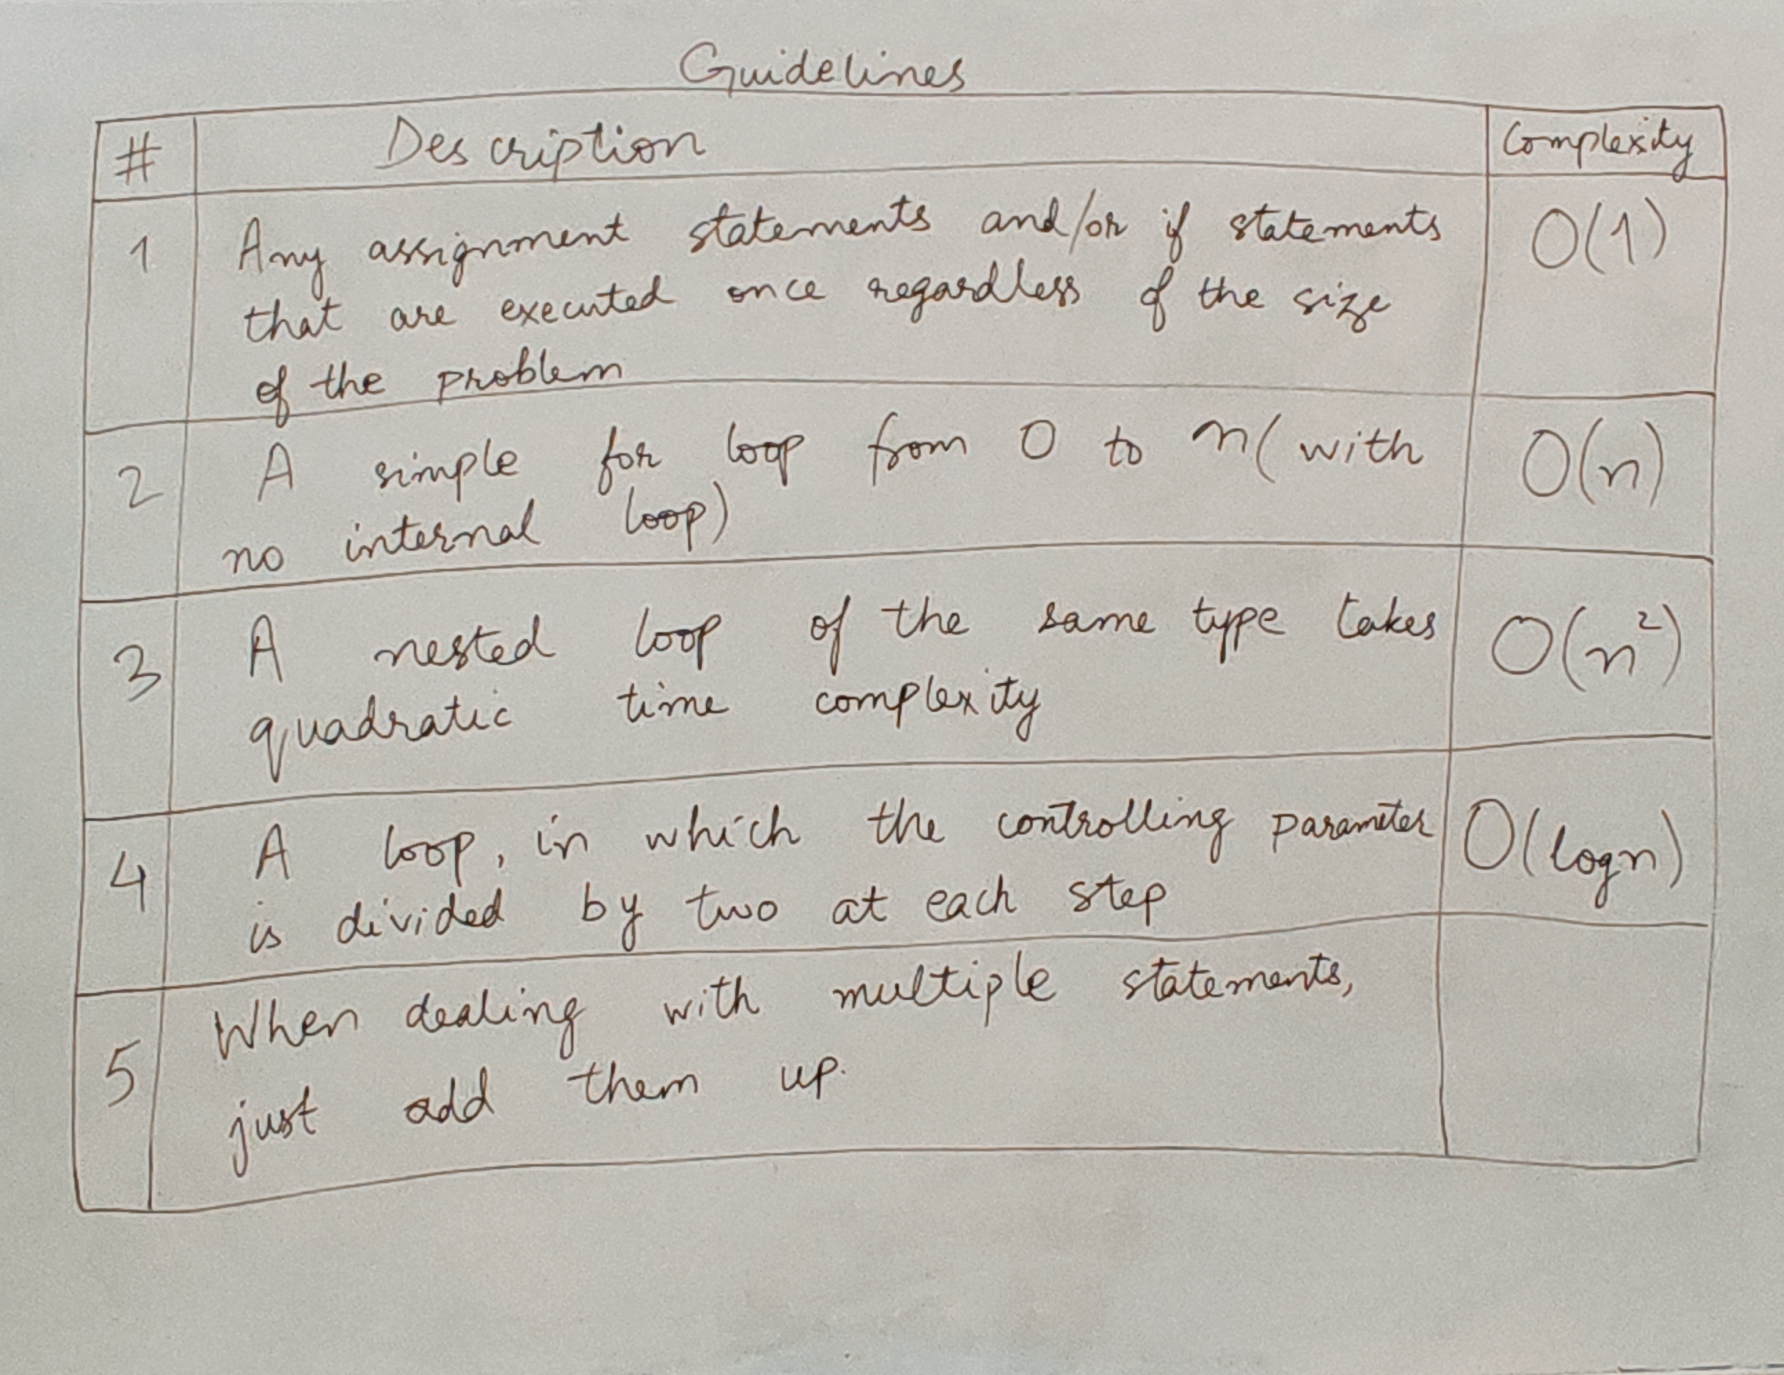 Guidelines
# Description Complexity
1 Any assignment statements and/or if statements O(1)
that are executed once regardless of the size
of the problem
2 A simple for loop from 0 to n (with O(n)
no internal loop)
3 A nested loop of the same type takes O(n²)
quadratic time complexity
4 A loop, in which the controlling parameter O(logn)
is divided by two at each step
5 When dealing with multiple statements,
just add them up.